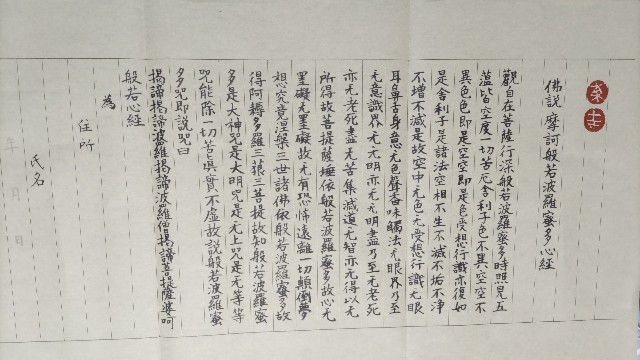 佛説摩訶般若波羅蜜多心經
觀自在菩薩行深般若波羅蜜多時照見五
蘊皆空度一切苦厄舍利子色不異空空不
異色色即是空空即是色受想行識亦復如
是舍利子是諸法空相不生不滅不垢不浄
不増不減是故空中无色无受想行識无眼
耳鼻舌身意无色聲香味觸法无眼界乃至
无意識界无无明亦无无明盡乃至无老死
亦无老死盡无苦集滅道无智亦无得以无
所得故菩提薩埵依般若波羅蜜多故心无
罣礙无罣礙故无有恐怖遠離一切顛倒夢
想究竟涅槃三世諸佛依般若波羅蜜多故
得阿耨多羅三藐三菩提故知般若波羅蜜
多是大神咒是大明咒是无上咒是无等等
咒能除一切苦真實不虚故説般若波羅蜜
多咒即説咒曰
揭諦揭諦波羅揭諦波羅僧揭諦菩提薩婆呵
般若心經
為
住所
氏名
年 月 日